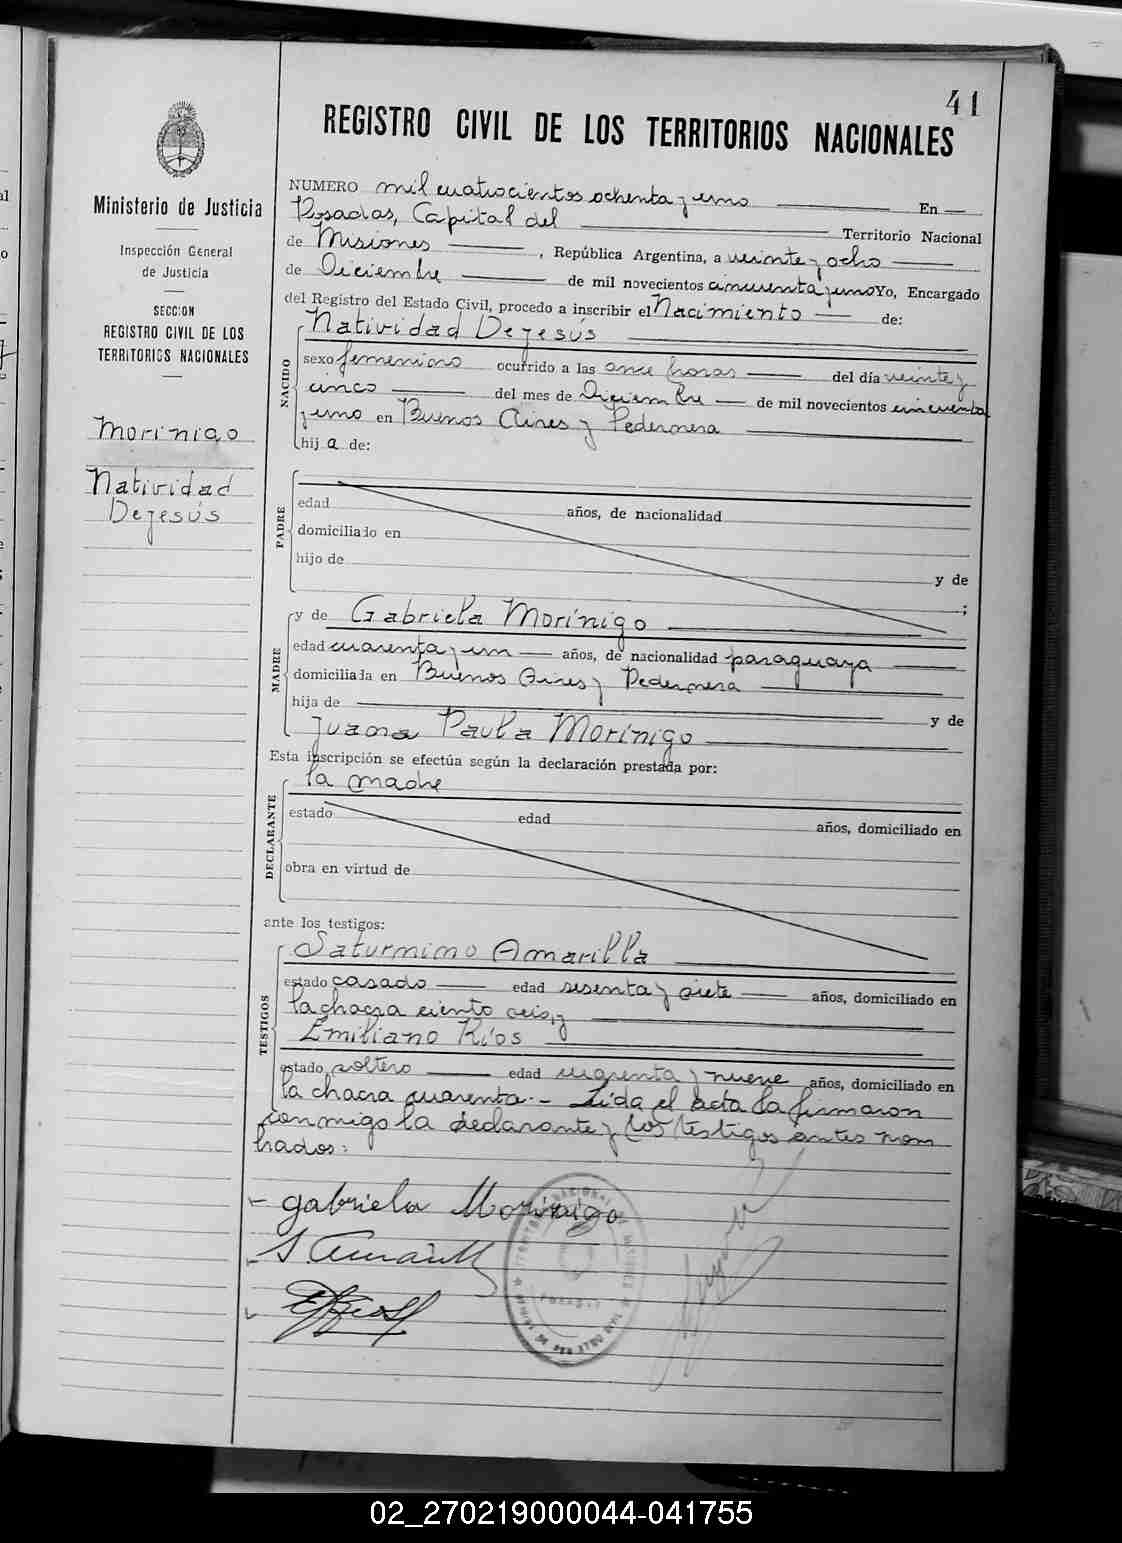 41
REGISTRO CIVIL DE LOS TERRITORIOS NACIONALES
Ministerio de Justicia
Inspección General
de Justicia
SECCION
REGISTRO CIVIL DE LOS
TERRITORIOS NACIONALES
Morinigo
Natividad
Dejesús
NUMERO mil cuatrocientos ochenta y uno En
Posadas, Capital del Territorio Nacional
de Misiones, República Argentina, a veinte y ocho
de Diciembre de mil novecientos cincuenta y uno Yo, Encargado
del Registro del Estado Civil, procedo a inscribir el Nacimiento de:
Natividad Dejesús
NACIDO
sexo femenino ocurrido a las once horas del día veinte y
cinco del mes de Diciembre de mil novecientos cincuenta
y uno en Buenos Aires y Pedernera
hij a de:
PADRE
edad años, de nacionalidad
domiciliado en
hijo de y de
;
MADRE
y de Gabriela Morínigo
edad cuarenta y un años, de nacionalidad paraguaya
domiciliada en Buenos Aires y Pedernera
hija de y de
Juana Paula Morínigo
Esta inscripción se efectúa según la declaración prestada por:
la madre
DECLARANTE
estado edad años, domiciliado en
obra en virtud de
ante los testigos:
TESTIGOS
Saturnino Amarilla
estado casado edad sesenta y siete años, domiciliado en
la chacra ciento seis, y
Emiliano Ríos
estado soltero edad cuarenta y nueve años, domiciliado en
la chacra cuarenta.- Leída el acta la firmaron
conmigo la declarante y los testigos antes nom
brados:
gabriela Morinigo
S. Amarilla
02_270219000044-041755